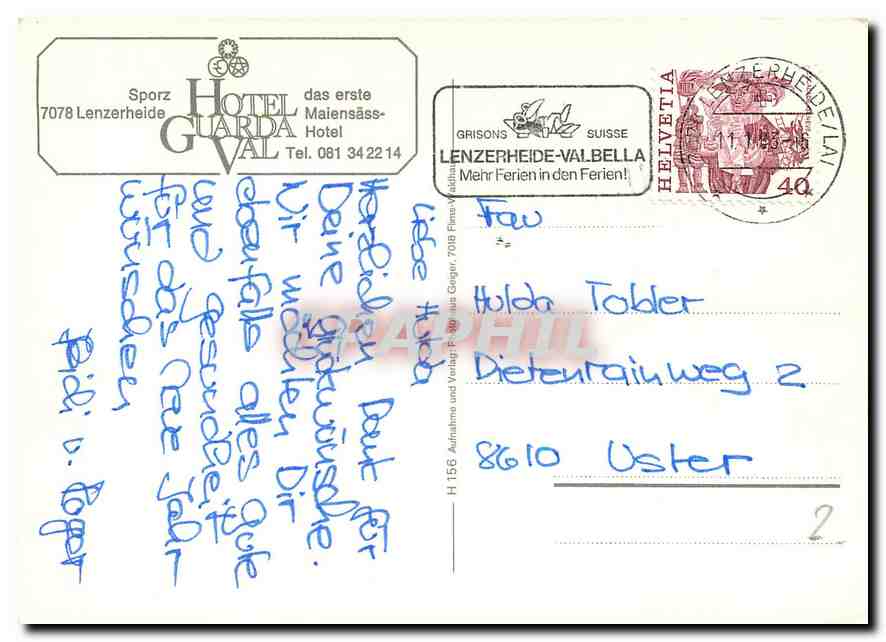 Sporz
7078 Lenzerheide
HOTEL
GUARDA
VAL
das erste
Maiensäss-
Hotel
Tel. 081 34 22 14
GRISONS SUISSE
LENZERHEIDE-VALBELLA
Mehr Ferien in den Ferien!
HELVETIA
40
LENZERHEIDE/LAI
11.1.83
Liebe Hulda
Herzlichen Dank für
Deine Glückwünsche.
Wir möchten Dir
ebenfalls alles Gute
und Gesundheit
für das Neue Jahr
wünschen
Heidi u. Roger
H 156 Aufnahme und Verlag: Photohaus Geiger, 7018 Flims-Waldhaus
Frau
Hulda Tobler
Dietenrainweg 2
8610 Uster
2
DELPHIL